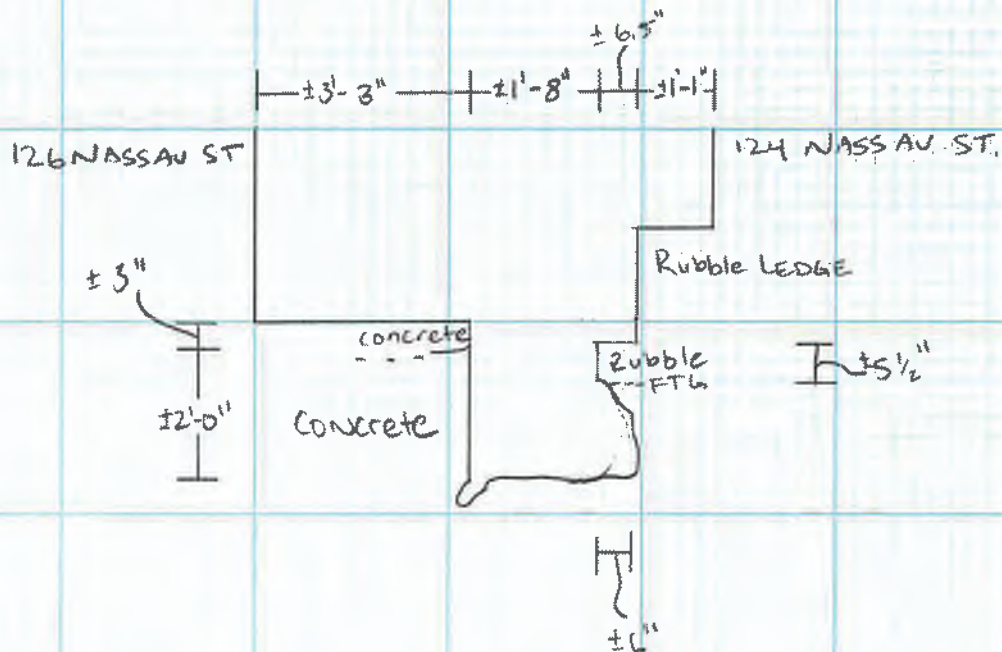 ± 6.5"
±3'- 3" ±1'-8" ±1'-1"
126 NASSAU ST
124 NASSAU ST.
Rubble LEDGE
± 3"
concrete
Rubble
FTG
±5 1/2"
±2'-0"
Concrete
±6"